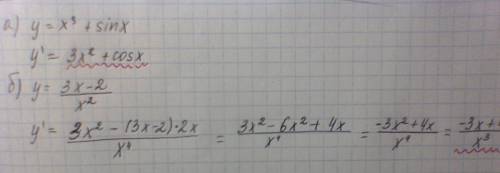 а) y = x³ + sinx
y' = 3x² + cosx
б) y = (3x-2)/x²
y' = (3x² - (3x-2)·2x)/x⁴ = (3x² - 6x² + 4x)/x⁴ = (-3x² + 4x)/x⁴ = (-3x +)/x³